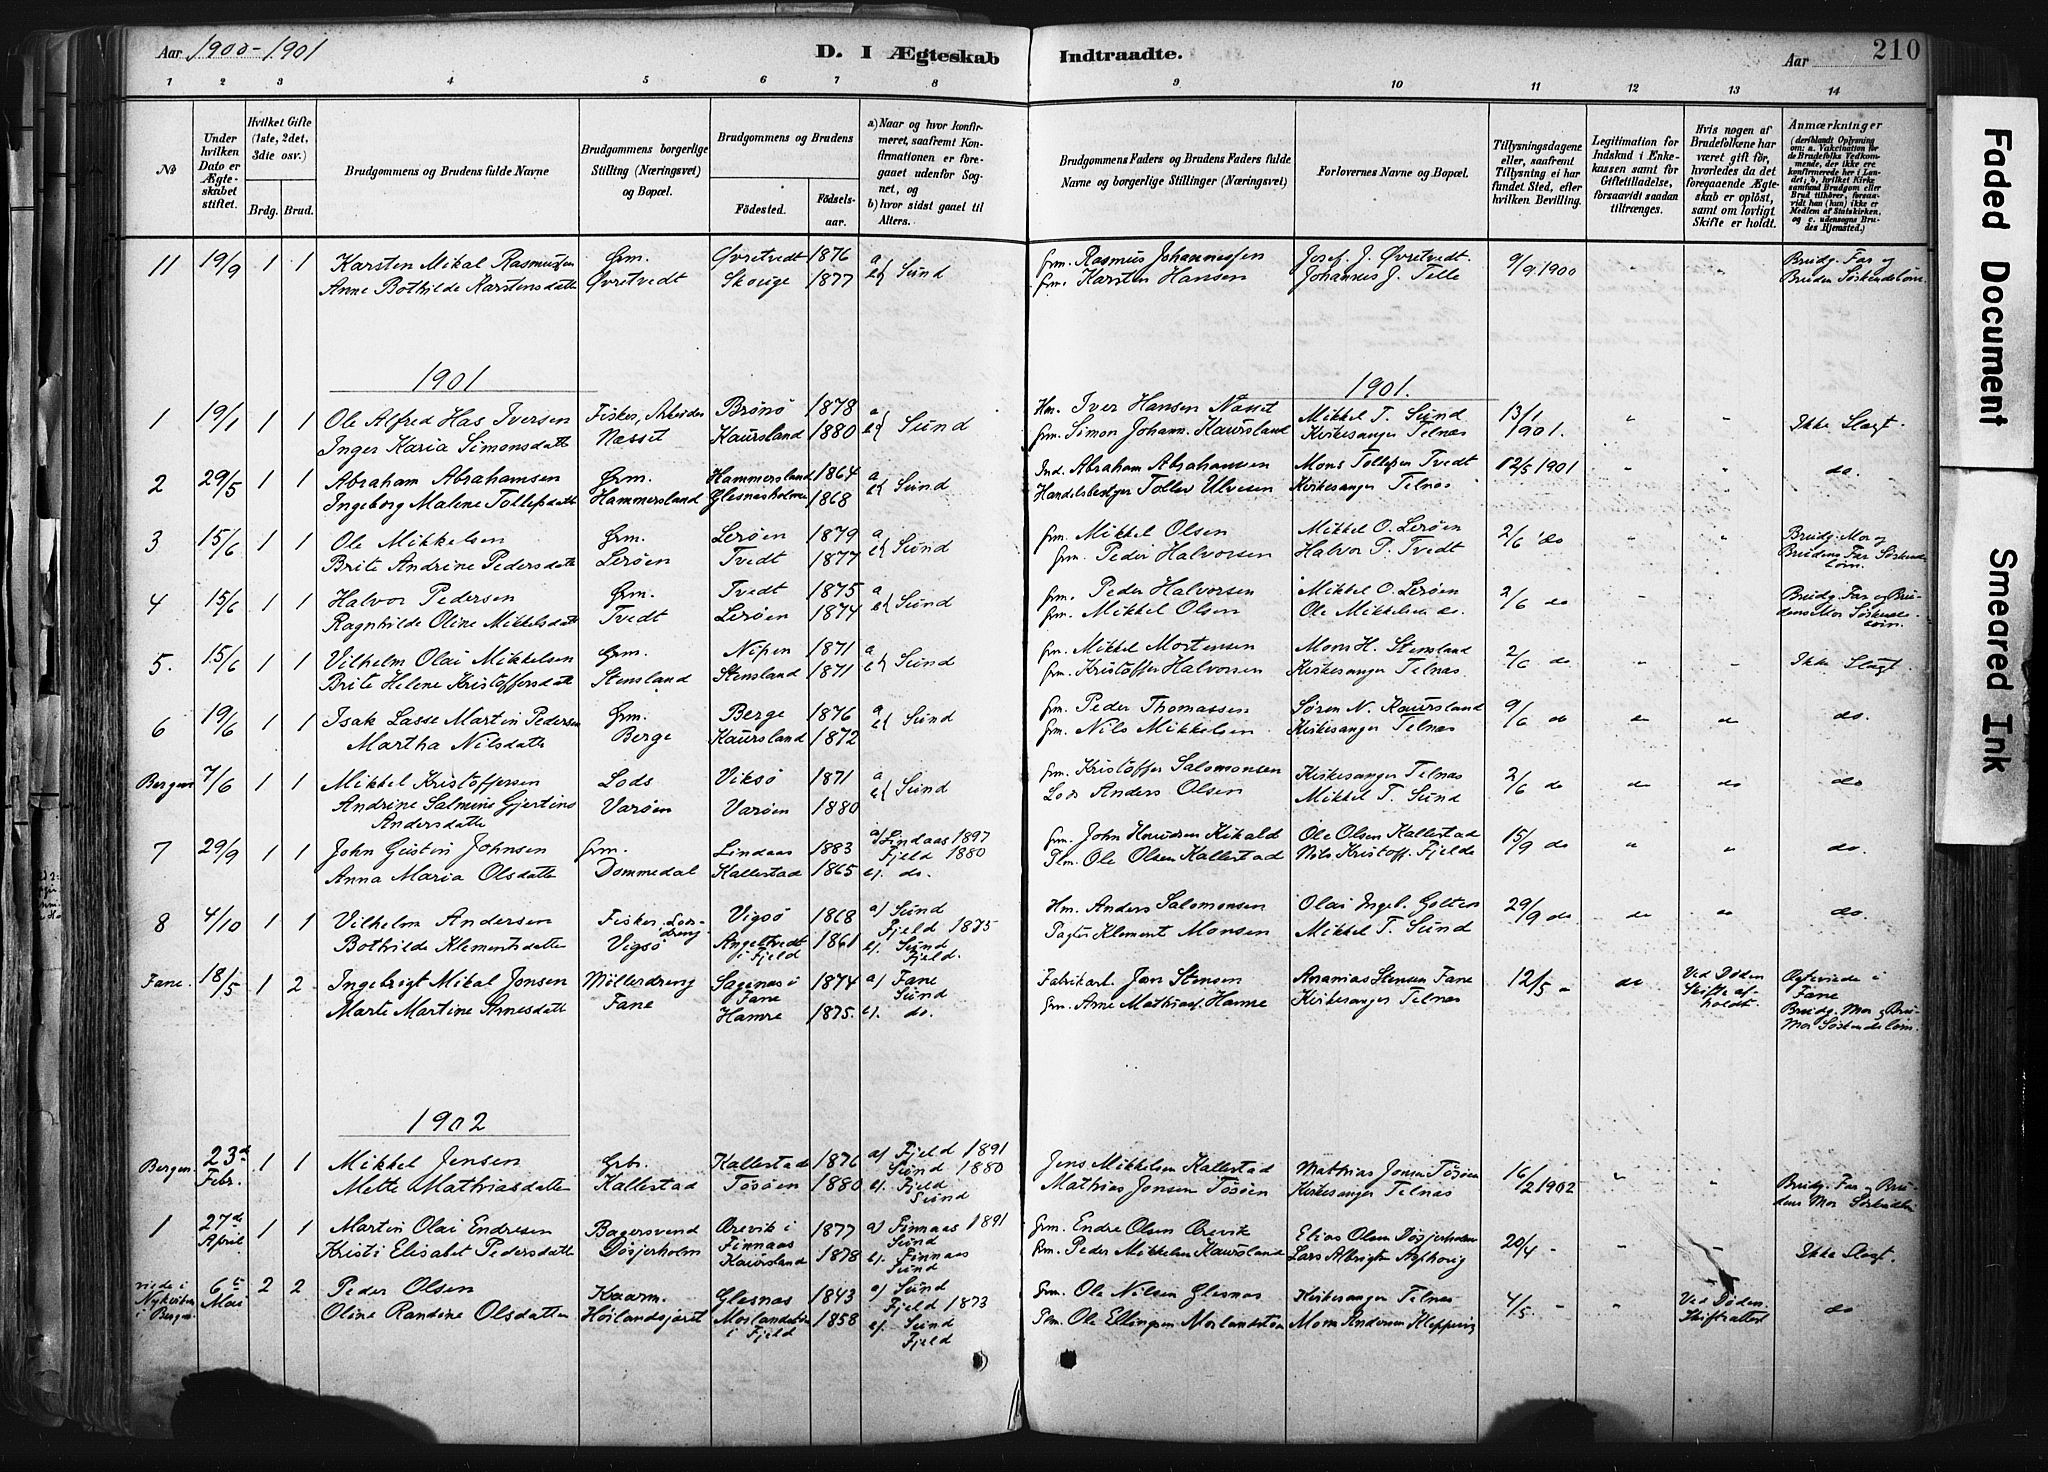 Aar 1900-1901
D. I Ægteskab Indtraadte.
Aar
210
1 2 3 4 5 6 7 8 9 10 11 12 13 14
No
Under hvilken Dato er Ægteskabet stiftet.
Hvilket Gifte (1ste, 2det, 3die osv.)
Brdg. Brud.
Brudgommens og Brudens fulde Navne
Brudgommens borgerlige Stilling (Næringsvei) og Bopæl.
Brudgommens og Brudens
Födested. Födselsaar.
a) Naar og hvor konfirmeret, saafremt Konfirmationen er foregaaet udenfor Sognet, og
b) hvor sidst gaaet til Alters.
Brudgommens Faders og Brudens Faders fulde Navne og borgerlige Stillinger (Næringsvei)
Forlovernes Navne og Bopæl.
Tillysningsdagene eller, saafremt Tillysning ei har fundet Sted, efter hvilken Bevilling.
Legitimation for Indskud i Enkekassen samt for Giftetilladelse, forsaavidt saadan tiltrænges.
Hvis nogen af Brudefolkene har været gift før, hvorledes da det foregaaende Ægteskab er oplöst, samt om lovligt Skifte er holdt.
Anmærkninger
(deriblandt Oplysning om: a. Vakcination for de Brudefolks Vedkommende, der ikke ere konfirmerede her i Landet; b. hvilket Kirkesamfund Brudgom eller Brud tilhører, forsaavidt han (hun) ikke er Medlem af Statskirken, og c. udensogns Brudes Hjemsted.)
11 19/9 1 1 Karsten Mikal Rasmussen Grm. Øvretvedt 1876 a Grm. Rasmus Johannessen Josef J. Øvretvedt. 9/9 1900 " Brudg. Far og
Anne Bothilde Karstensdatter Øvretvedt Skouge 1877 b} Sund Grm. Karsten Hansen Johannes J. Telle Bruden Söskendebørn.
1901
1901.
1 19/1 1 1 Ole Alfred Has Iversen Fisker, Arbeider Brönö 1878 a Hm. Iver Hansen Næsset Mikkel T. Sund 13/1 " " Ikke Slagt.
Inger Karia Simonsdatt Næsset Kaursland 1880 b} Sund Grm. Simon Johann. Kaursland Kirkesanger Telnæs 1901.
2 29/5 1 1 Abraham Abrahamsen Grm. Hammersland 1864 a Ind. Abraham Abrahamsen Mons Tollefsen Tvedt 12/5 1901 " " do.
Ingeborg Malene Tollefsdatt Hammersland Glesnesholmen 1868 b} Sund Handelsbestyer Tollev Ulvesen Kirkesanger Telnæs
3 15/6 1 1 Ole Mikkelsen Grm. Leröen 1879 a Grm. Mikkel Olsen Mikkel O. Leröen 2/6 do " " Brudg. Mor og
Brite Andrine Pedersdatt Leröen Tvedt 1877 b} Sund Grm. Peder Halvorsen Halvor P. Tvedt Brudens Far Söskendebörn.
4 15/6 1 1 Halvor Pedersen Grm. Tvedt 1875 a Grm. Peder Halvorsen Mikkel O. Leröen 2/6 do " " Brudg. Far og Brudens Mor Söskendebörn.
Ragnhilde Oline Mikkelsdatt Tvedt Leröen 1874 b} Sund Grm. Mikkel Olsen Ole Mikkelsen do.
5. 15/6 1 1 Vilhelm Olai Mikkelsen Grm. Nipen 1871 a Grm. Mikkel Mortensen Mons H. Stensland 2/6 do " " Ikke Slagt.
Brite Helene Kristoffersdatt Stensland Stensland 1871 b} Sund Grm. Kristoffer Halvorsen Kirkesanger Telnæs.
6 19/6 1 1 Isak Lasse Martin Pedersen Grm. Berge 1876 a Grm. Peder Thomassen Sören N. Kaursland 9/6 do do do do.
Martha Nilsdatte Berge Kaursland 1872 b} Sund Grm. Nils Mikkelsen Kirkesanger Telnæs
Bergen 7/6 1 1 Mikkel Kristoffersen Lods Viksö 1871 a Grm. Kristoffer Salomonsen Kirkesanger Telnæs 2/6 do do do do
Andrine Salmine Gjertine Varöen Varöen 1880 b} Sund Lods Anders Olsen Mikkel T. Sund
Andersdatte
7 29/9 1 1 John Geistin Johnsen Grm. Lindaas 1883 a) Lindaas 1897 Grm. John Ole Olsen Kallestad 15/9 do " " do.
Fjeld 1880
Anna Maria Olsdatte Dommedal Kallestad 1865 b). do. Plm. Ole Olsen Kallestad Nils Kristoff. Fjelde
8 4/10 1 1 Vilhelm Andersen Fisker, Lodsdreng Vigsö 1868 a) Sund Hm. Anders Salomonsen Olai Ingel. Golten 29/9 do do do do.
Fjeld 1875
Bothilde Klementsdatter Vigsö Angeltvedt i Fjeld 1861 b). Sund Pagter Klement Monsen Mikkel T. Sund
Fjeld.
Fane. 18/5 1 2 Ingebrigt Mikal Jonsen Möllerdreng Sagenes i Fane 1874 a) Fane Fabrikarb. Jon Stensen Ananias Stensen Fane 12/5 " do Ved Döden Skifte afholdt. Ogteviede i Fane
Sund
Marte Martine Arnesdatt Fane Hamre 1875. b). do. Grm. Arne Mathiasf. Hamre Kirkesanger Telnæs Brudg. Mor og Bru. Mor Söskendebörn.
1902
Bergen. 23d Febr. 1 1 Mikkel Jensen Grb. Kallestad 1876 a) Fjeld 1891 Jens Mikkelsen Kallestad Mathias Jonsen Tösöen 16/2 1902 " " Brudg. Far og Brudens Mor
Sund 1880
Mette Mathiasdatter Kallestad Tösöen 1880 b). Fjeld Mathias Jonsen Tösöen Kirkesanger Telnæs
Sund
1 27de April 1 1 Martin Olai Endresen Bagersvend Ørevik i Finnaas 1877 a) Finnaas 1891 Grm. Endre Olsen Ørevik Elias Olsen Dösjerholm 20/4 " " " Ikke Slagt.
Sund
Kristi Elisabet Pedersdatte Dösjerholm Kaursland 1878 b). Finnaas Grm. Peder Mikkelsen Kaursland Lars Albrigtsen
Sund
viede i Nykirken i Bergen 6te Mai 2 2 Peder Olsen Kaarm. Glesnæs 1843 a) Sund Grm. Ole Nilsen Glesnæs Kirkesanger Telnæs 4/5 " " Ved Döden. do
Fjeld 1873
Oline Randine Olsdatten Morlandstö i Fjeld 1858 b). Sund Plm. Ole Ellingsen Morlandstö Mons Andersen Kleppevig
Fjeld
Faded Document
Smeared Ink